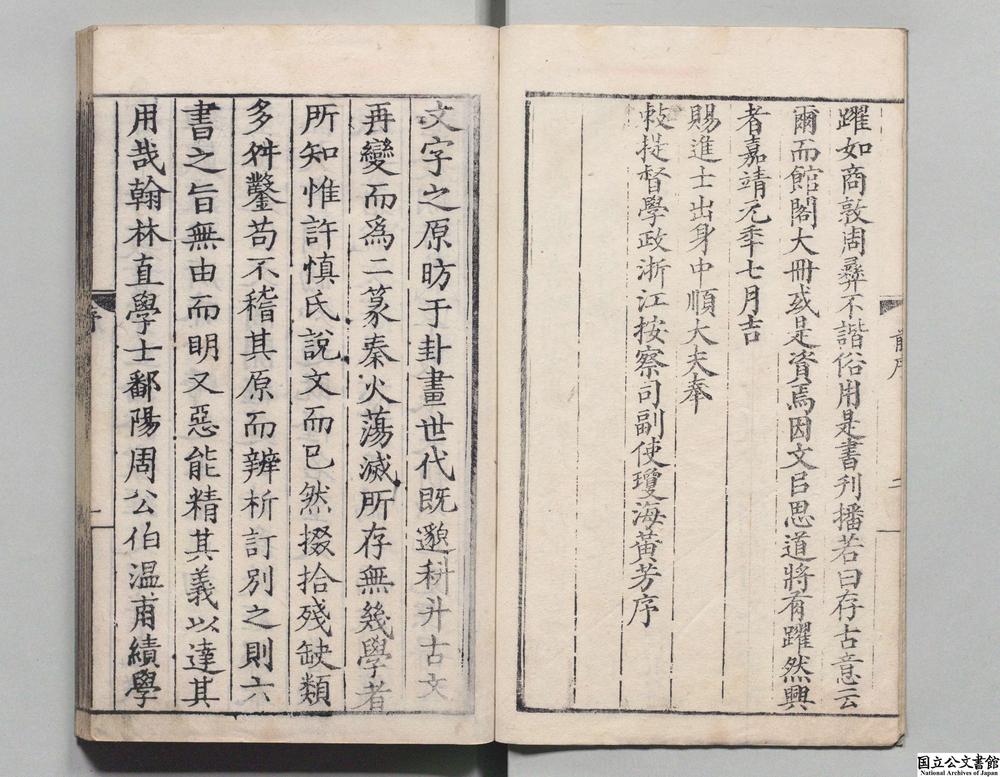 躍如商敦周彝不諧俗用是書刋播若曰存古意云
爾而館閣大冊或是資焉因文㠯思道將有躍然興
者嘉靖元年七月吉
賜進士出身中順大夫奉
敕提督學政浙江按察司副使瓊海黃芳序
前序
二
文字之原昉于卦畫世代旣邈科斗古文
再變而爲二篆秦火蕩滅所存無幾學者
所知惟許慎氏說文而已然掇拾殘缺類
多舛鑿苟不稽其原而辨析訂別之則六
書之旨無由而明又惡能精其義以達其
用哉翰林直學士鄱陽周公伯溫甫績學
序
一
国立公文書館
National Archives of Japan